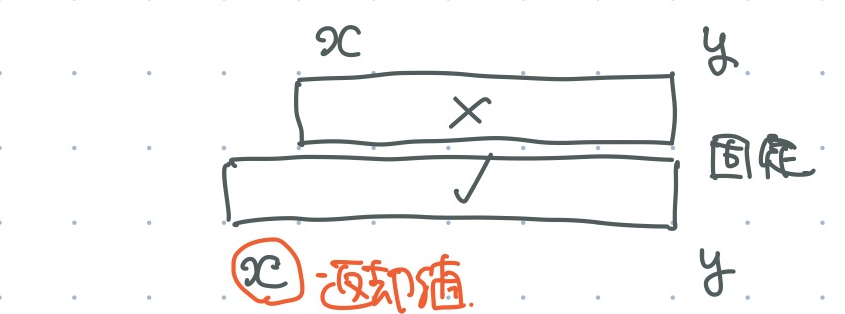 x y
×
固定
✓
x 返却値. y